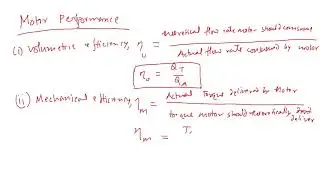 Motor Performance
(i) Volumetric efficiency, ηv = theoretical flow rate motor should consume
Actual flow rate consumed by motor
ηv = QT / QA
(ii) Mechanical efficiency, ηm = Actual Torque delivered by Motor
torque motor should theoretically deliver
ηm = T